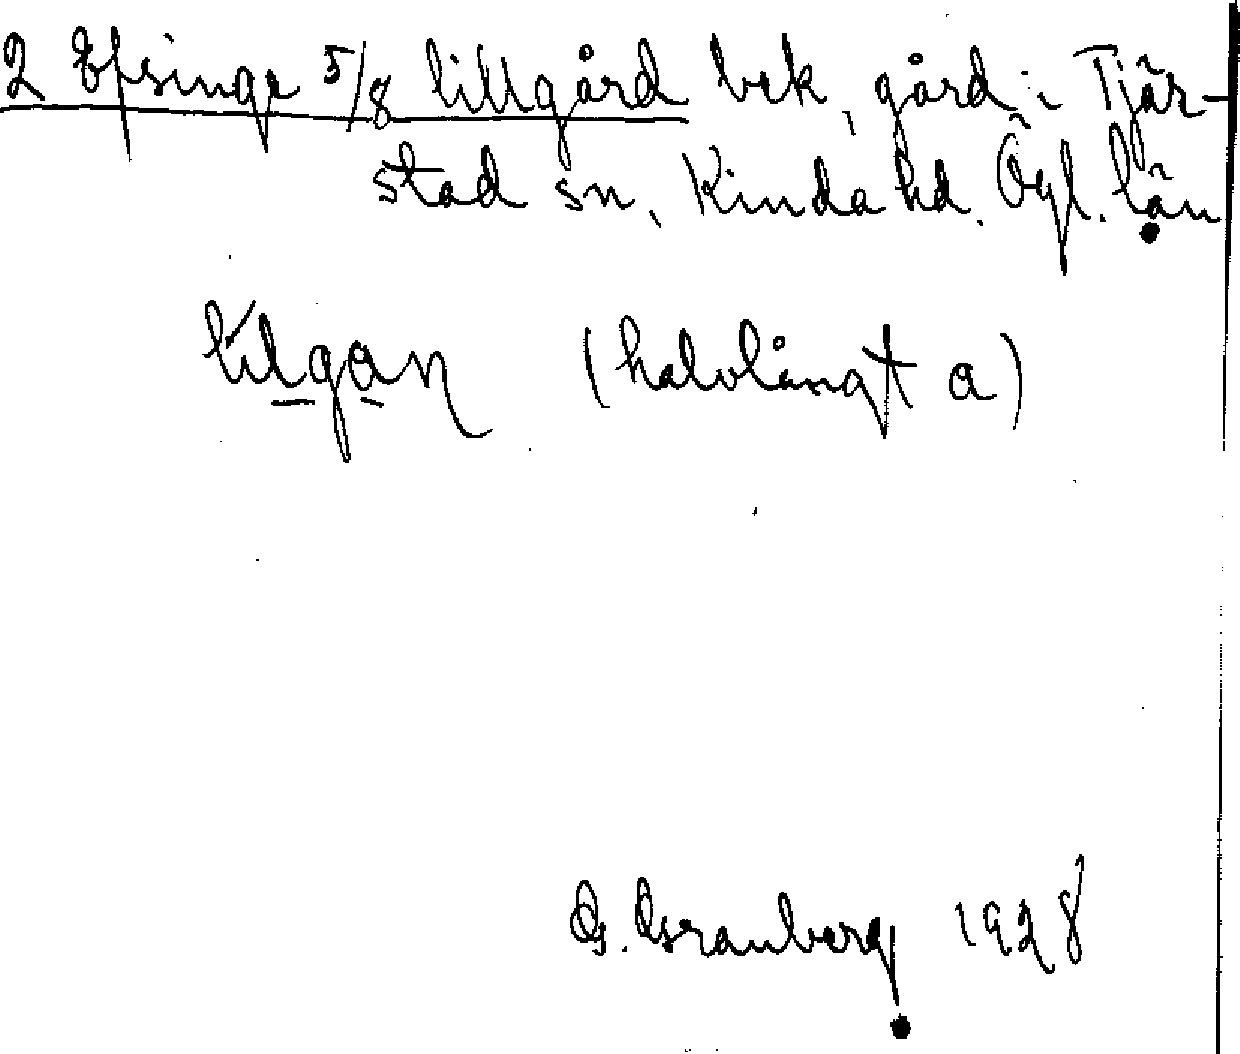 2 Opsinge 5/8 lillgård bek, gård i Tjär-
stad sn, Kinda hd. Ögl. län
lilgaɳ (halvlångt a)
G. Granberg 1928